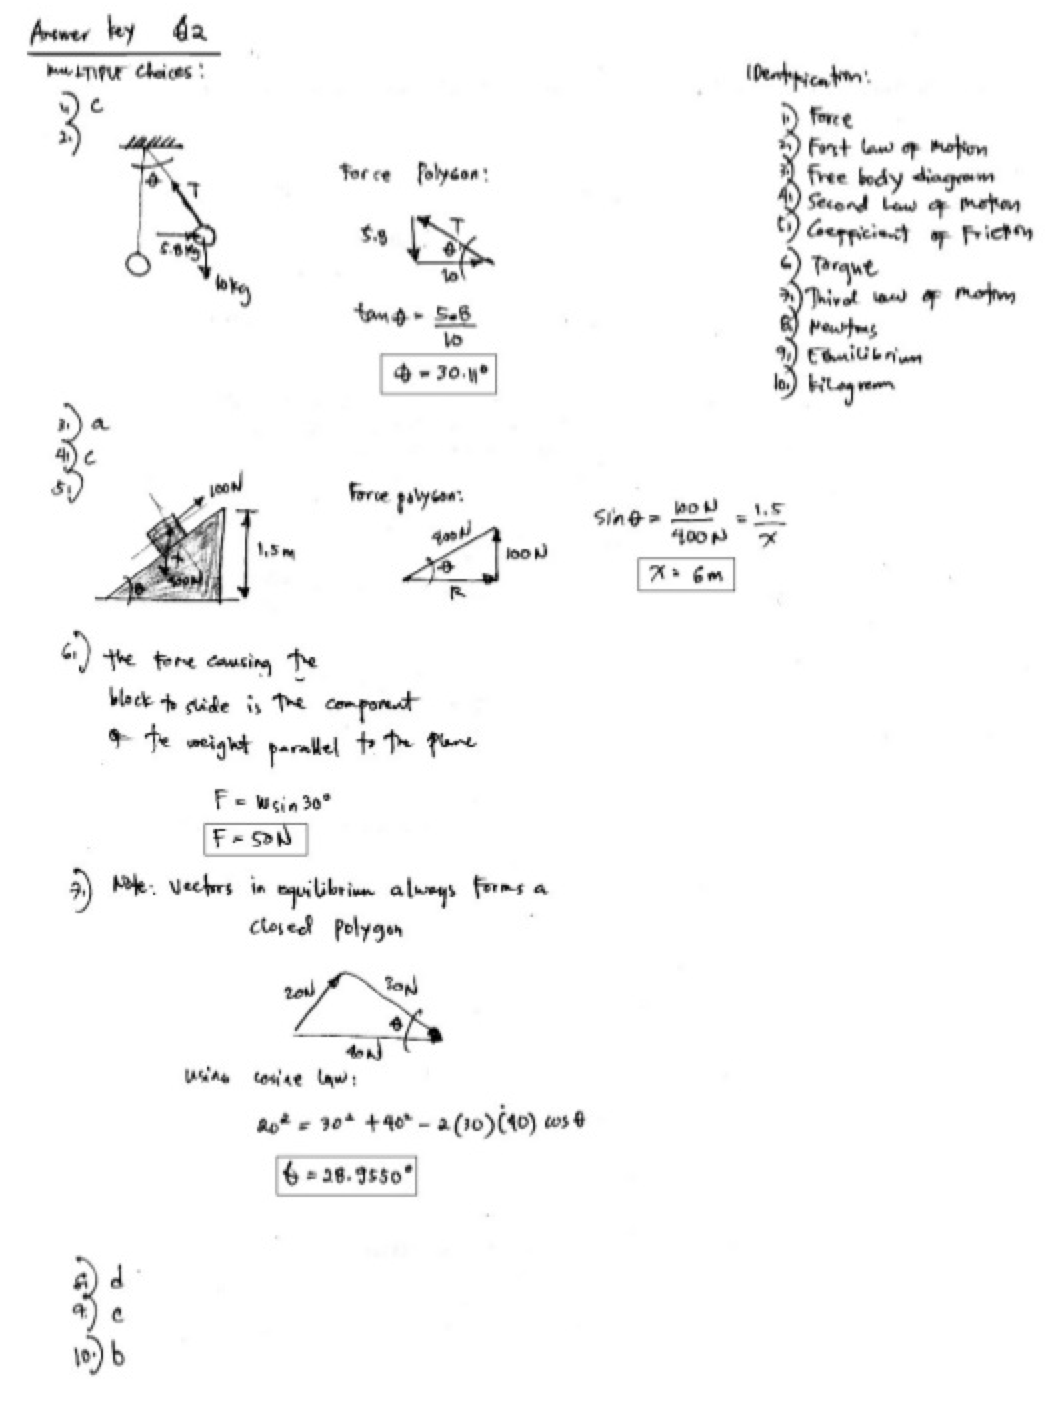 Answer key Q2
MULTIPLE Choices:
1.) c
2.)
θ
T
5.8kg
10kg
Force Polygon:
5.8
T
θ
10
tan θ = 5.8/10
θ = 30.11°
3.) a
4.) c
5.)
100N
1.5m
θ
400N
Force polygon:
400N
θ
100N
R
sin θ = 100 N/400 N = 1.5/x
x = 6m
6.) the force causing the
block to slide is the component
of the weight parallel to the plane
F = W sin 30°
F = 50N
7.) Note: Vectors in equilibrium always forms a
closed polygon
20N
30N
θ
40N
using cosine law:
20² = 30² + 40² - 2(30)(40) cos θ
θ = 28.9550°
8.) d
9.) c
10.) b
Identification:
1.) Force
2.) First law of motion
3.) Free body diagram
4.) Second law of motion
5.) Coefficient of Friction
6.) Torque
7.) Third law of motion
8.) Newtons
9.) Equilibrium
10.) kilogram